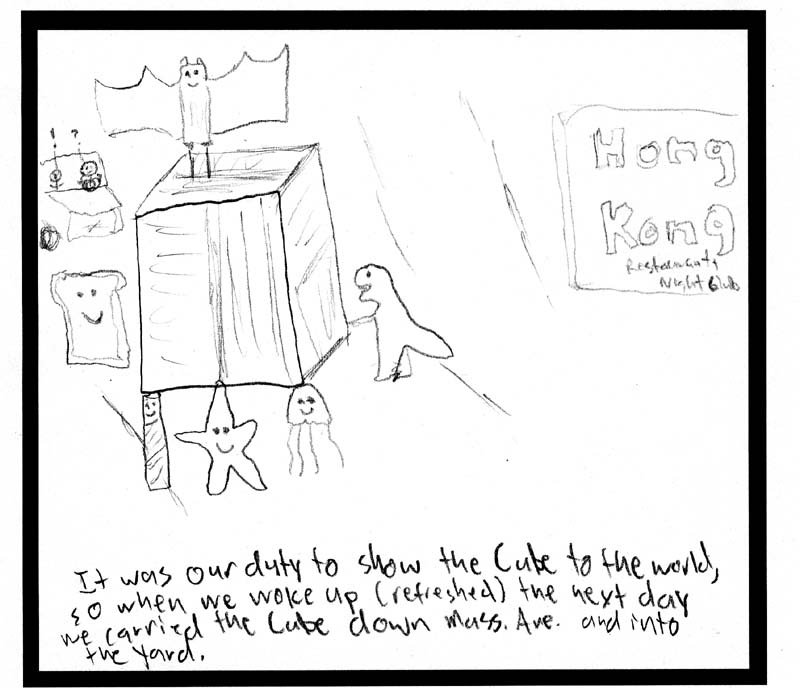 ! ?
Hong
Kong
Restaurants
Night Club
It was our duty to show the Cube to the world,
so when we woke up (refreshed) the next day
we carried the Cube down Mass. Ave. and into
the Yard.